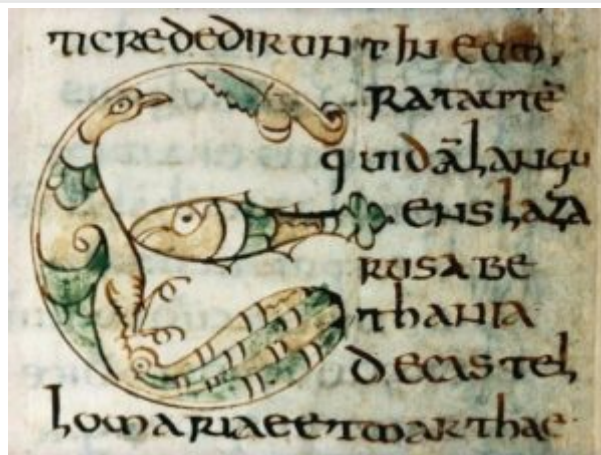 ticrededirunt In eum,
Eratautē
quidālangu
enslaza
rusabe
thania
decastel
lomariaeetmarthae